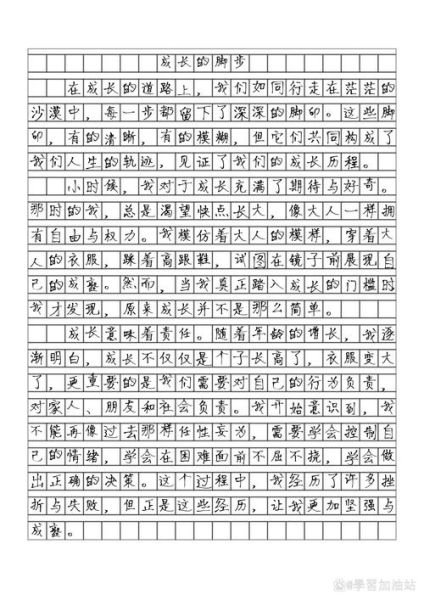 成长的脚步
在成长的道路上，我们如同行走在茫茫的
沙漠中，每一步都留下了深深的脚印。这些脚
印，有的清晰，有的模糊，但它们共同构成了
我们人生的轨迹，见证了我们的成长历程。
小时候，我对于成长充满了期待与好奇。
那时的我，总是渴望快点长大，像大人一样拥
有自由与权力。我模仿着大人的模样，穿着大
人的衣服，踩着高跟鞋，试图在镜子前展现自
己的成熟。然而，当我真正踏入成长的门槛时
我才发现，原来成长并不是那么简单。
成长意味着责任。随着年龄的增长，我逐
渐明白，成长不仅仅是个子长高了，衣服变大
了，更重要的是我们需要对自己的行为负责，
对家人、朋友和社会负责。我开始意识到，我
不能再像过去那样任性妄为，需要学会控制自
己的情绪，学会在困难面前不屈不挠，学会做
出正确的决策。这个过程中，我经历了许多挫
折与失败，但正是这些经历，让我更加坚强与
成熟。
@學習加油站